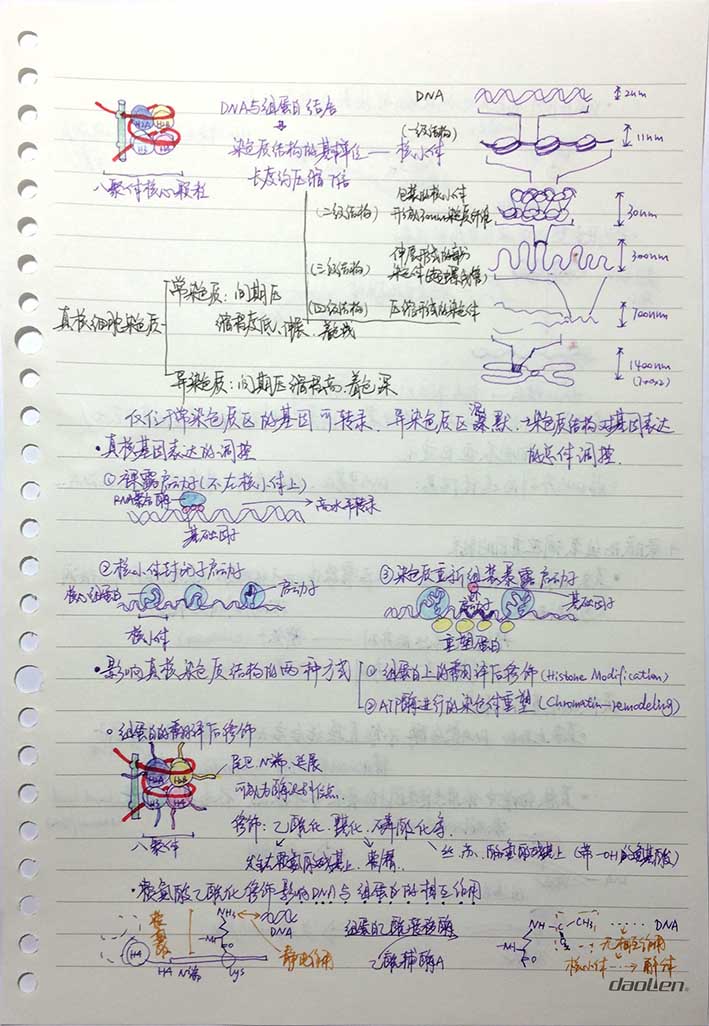 DNA与组蛋白结合
DNA
2nm
H2A H2B
H3 H4
染色质结构的基本单位——核小体
(一级结构)
11nm
长度约压缩7倍
八聚体核心颗粒
(二级结构)
包装的核小体
形成30nm染色质纤维
30nm
(三级结构)
伸展形式的部分
染色体
300nm
真核细胞染色质
常染色质：间期区
缩程度低、伸展、着色浅
(四级结构)
压缩形式的染色体
700nm
异染色质：间期区缩程高、着色深
1400nm
(700x2)
仅位于常染色质区的基因可转录、异染色质区沉默.
染色质结构对基因表达
的总体调控.
·真核基因表达的调控
①裸露启动子(不在核小体上)
RNA聚合酶
高水平转录
基础因子
②核小体封闭了启动子
③染色质重新组装暴露启动子
核心组蛋白
启动子
启动子
基础因子
核小体
重塑蛋白
·影响真核染色质结构的两种方式
①组蛋白上的翻译后修饰(Histone Modification)
②ATP酶进行的染色体重塑(Chromatin-remodeling)
组蛋白的翻译后修饰
H2A H2B
H3 H4
尾巴N端、延展
可成为酶
修饰：乙酰化、磷酸化等.
八聚体
丝、苏、酪氨酸残基上(带-OH的氨基酸)
·赖氨酸乙酰化修饰影响DNA与组蛋白的相互作用
NH3
DNA
静电作用
H4
H4 N端
Lys
组蛋白乙酰转移酶
乙酰辅酶A
NH—C—CH3
DNA
无相互作用
核小体
解体
daolien